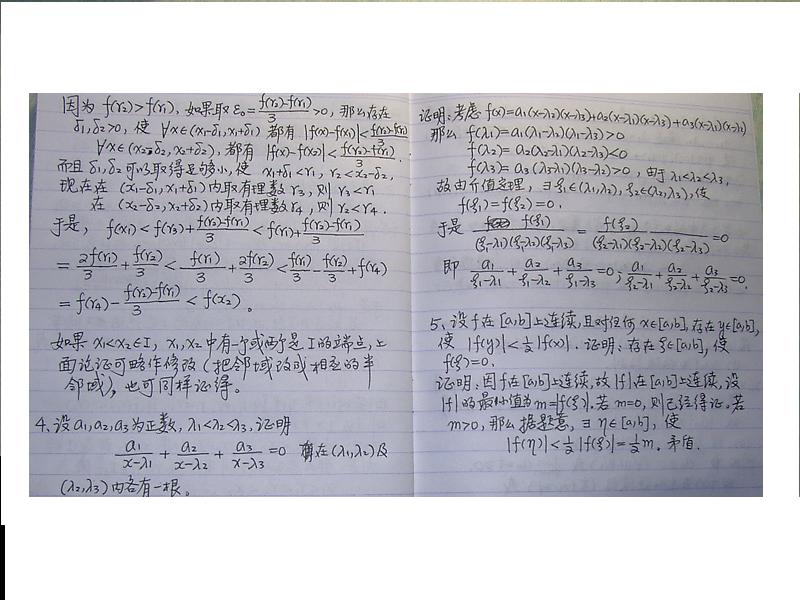 因为 f(r₂)>f(r₁), 如果取 ε₀=(f(r₂)-f(r₁))/3>0, 那么存在
δ₁,δ₂>0, 使 ∀x∈(x₁-δ₁,x₁+δ₁) 都有 |f(x)-f(x₁)|<(f(r₂)-f(r₁))/3
∀x∈(x₂-δ₂,x₂+δ₂), 都有 |f(x)-f(x₂)|<(f(r₂)-f(r₁))/3.
而且 δ₁,δ₂可以取得足够小, 使 x₁+δ₁<r₁, r₂<x₂-δ₂,
现在在 (x₁-δ₁,x₁+δ₁)内取有理数 r₃, 则 r₃<r₁
在 (x₂-δ₂,x₂+δ₂)内取有理数 r₄, 则 r₂<r₄.
于是, f(x₁)<f(r₃)+(f(r₂)-f(r₁))/3<f(r₁)+(f(r₂)-f(r₁))/3
=2f(r₁)/3+f(r₂)/3<f(r₁)/3+2f(r₂)/3<f(r₁)/3-f(r₂)/3+f(r₄)
=f(r₄)-(f(r₂)-f(r₁))/3<f(x₂)。
如果 x₁<x₂∈I, x₁,x₂中有一个或两个是I的端点,上
面论证可略作修改(把邻域改成相应的半
邻域),也可同样证得。
4、设a₁,a₂,a₃为正数, λ₁<λ₂<λ₃. 证明
a₁/(x-λ₁)+a₂/(x-λ₂)+a₃/(x-λ₃)=0 在(λ₁,λ₂)及
(λ₂,λ₃)内各有一根。
证明:考虑 f(x)=a₁(x-λ₂)(x-λ₃)+a₂(x-λ₁)(x-λ₃)+a₃(x-λ₁)(x-λ₂)
那么 f(λ₁)=a₁(λ₁-λ₂)(λ₁-λ₃)>0
f(λ₂)=a₂(λ₂-λ₁)(λ₂-λ₃)<0
f(λ₃)=a₃(λ₃-λ₁)(λ₃-λ₂)>0, 由于 λ₁<λ₂<λ₃,
故由介值定理, ∃ξ₁∈(λ₁,λ₂), ξ₂∈(λ₂,λ₃), 使
f(ξ₁)=f(ξ₂)=0.
于是 f(ξ₁)/((ξ₁-λ₁)(ξ₁-λ₂)(ξ₁-λ₃))=f(ξ₂)/((ξ₂-λ₁)(ξ₂-λ₂)(ξ₂-λ₃))=0
即 a₁/(ξ₁-λ₁)+a₂/(ξ₁-λ₂)+a₃/(ξ₁-λ₃)=0; a₁/(ξ₂-λ₁)+a₂/(ξ₂-λ₂)+a₃/(ξ₂-λ₃)=0.
5、设f在[a,b]上连续,且对任何x∈[a,b],存在y∈[a,b],
使 |f(y)|<½|f(x)|. 证明:存在ξ∈[a,b],使
f(ξ)=0.
证明:因f在[a,b]上连续,故|f|在[a,b]上连续,设
|f|的最小值为m=|f(ξ)|.若m=0,则已经得证.若
m>0,那么据题意,∃η∈[a,b],使
|f(η)|<½|f(ξ)|=½m. 矛盾.